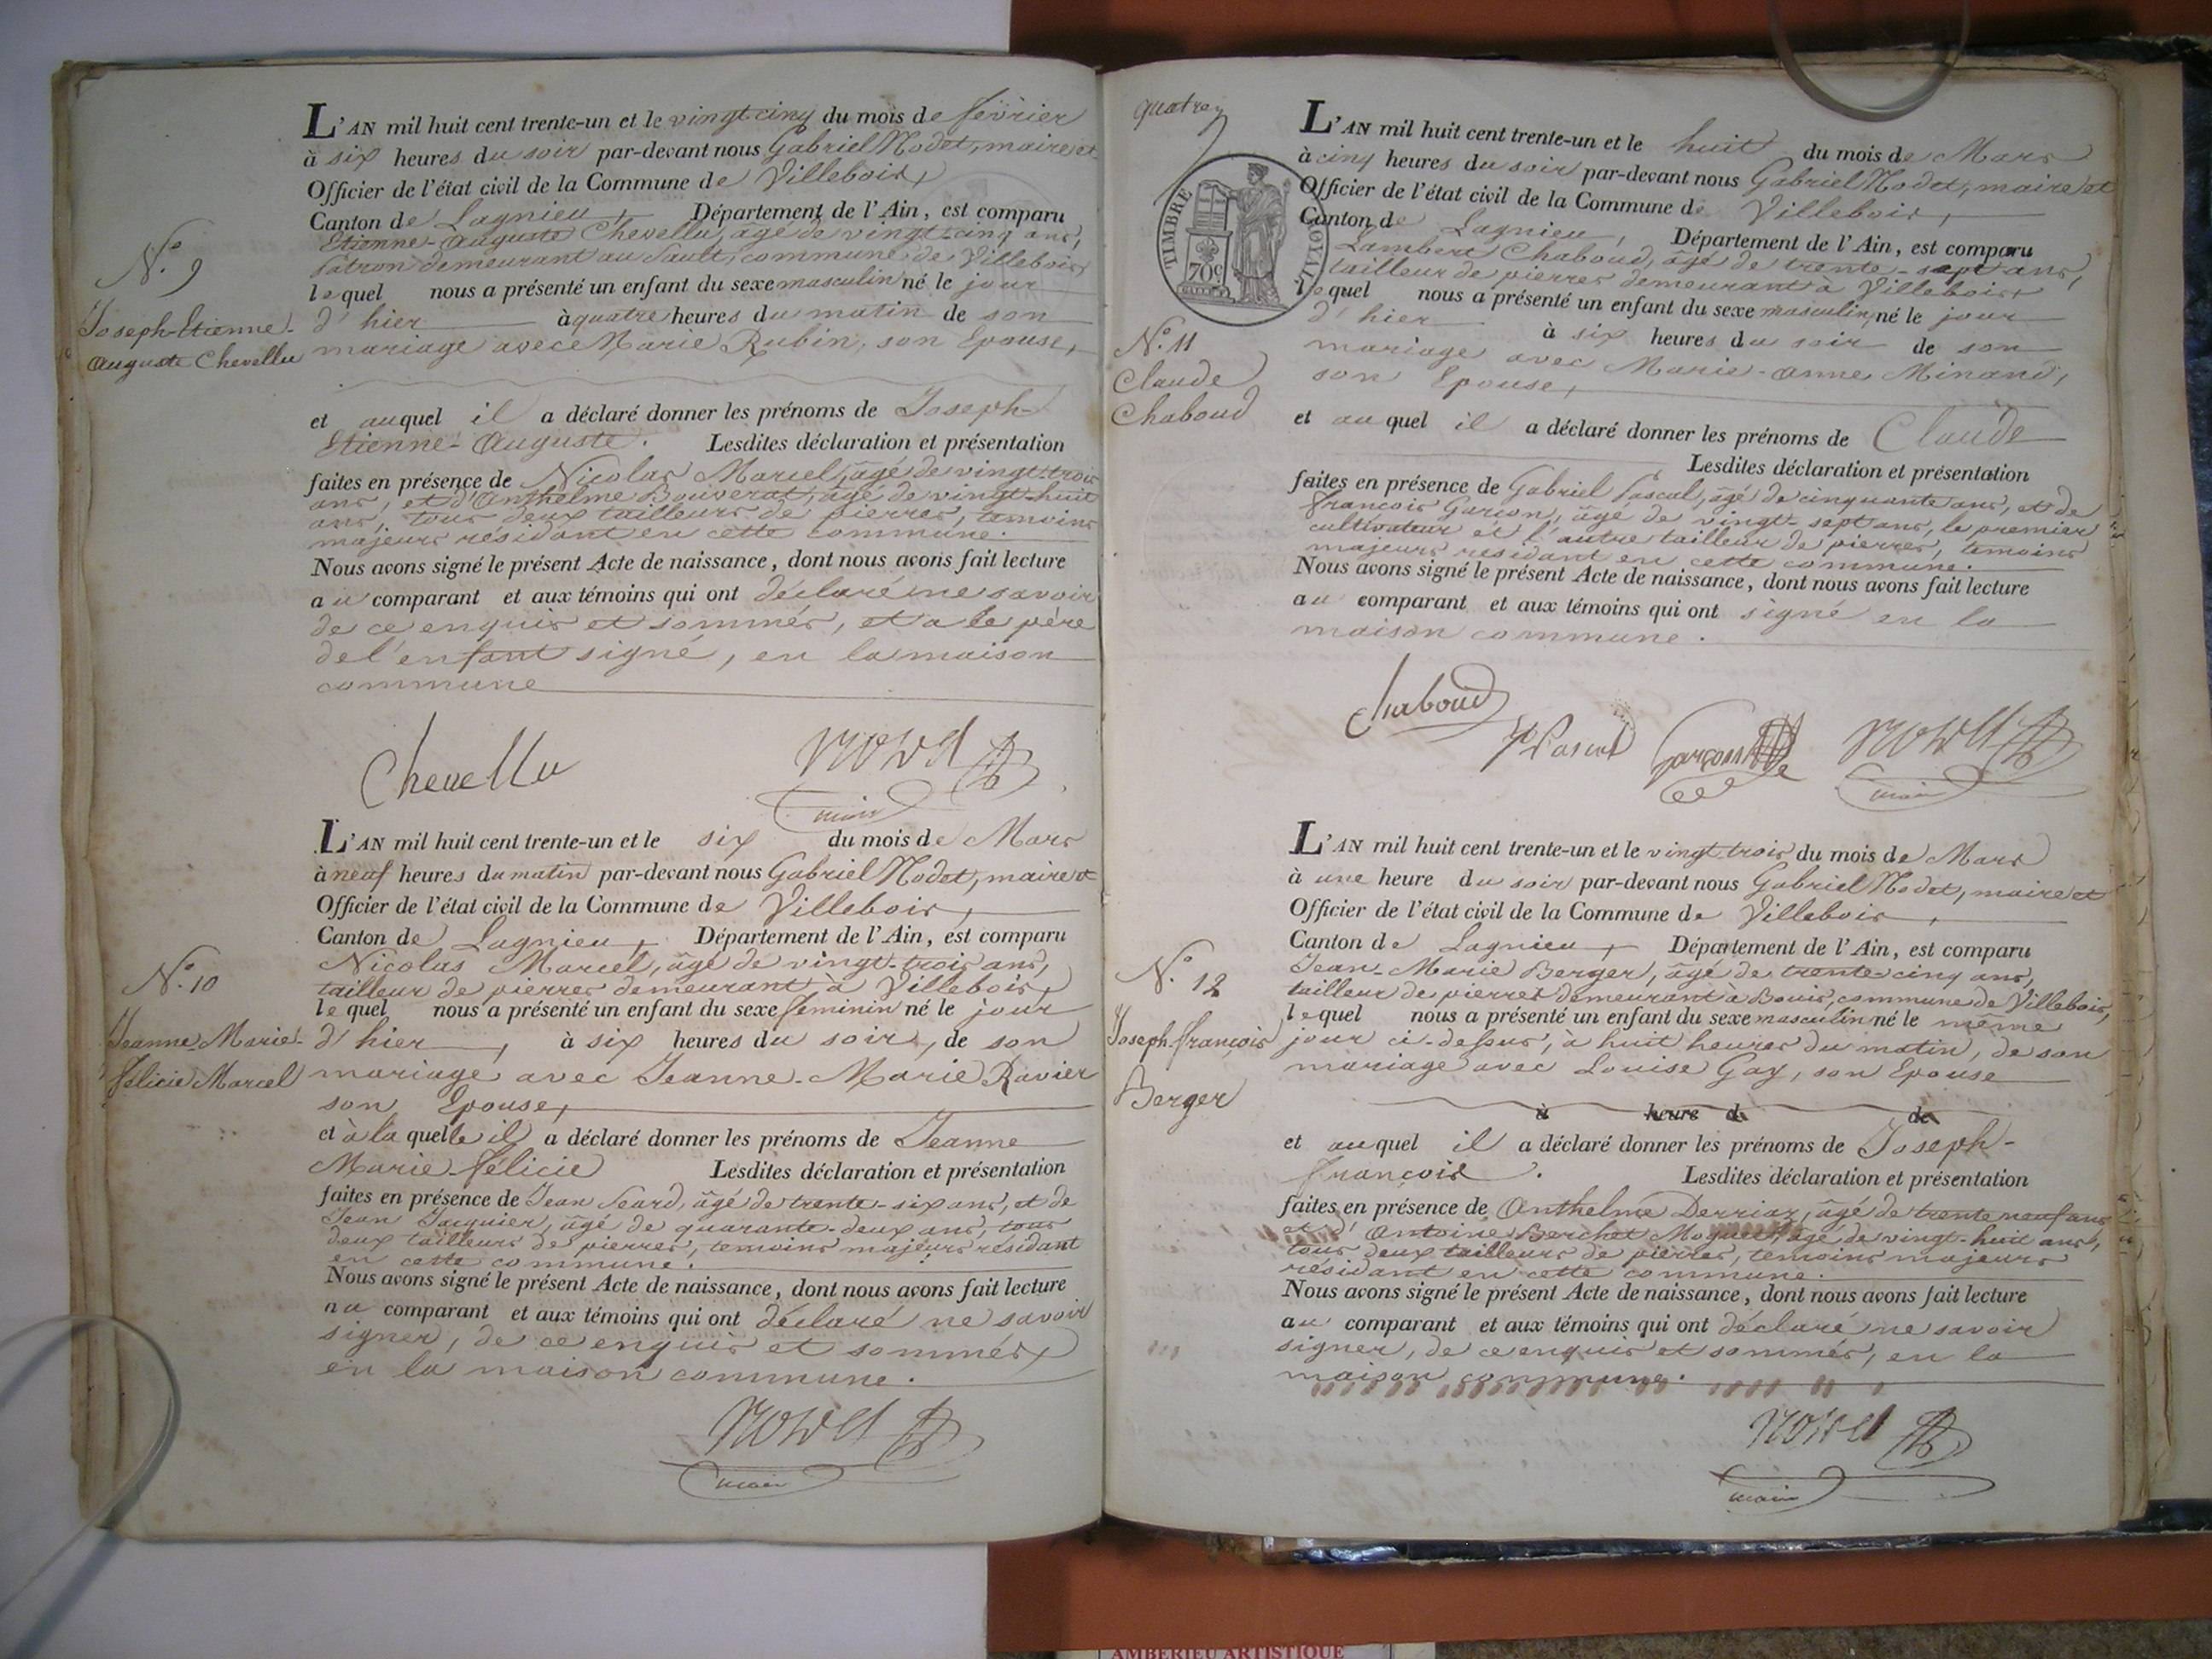 L'AN mil huit cent trente-un et le vingt cinq du mois de février
à six heures du soir par-devant nous Gabriel Nodet, maire et
Officier de l'état civil de la Commune de Villebois,
Canton de Lagnieu, Département de l'Ain, est comparu
Etienne-Auguste Chevellu, âgé de vingt-cinq ans,
Patron demeurant au Sault, commune de Villebois
lequel nous a présenté un enfant du sexe masculin né le jour
d'hier à quatre heures du matin de son
mariage avec Marie Rubin, son Epouse,
et auquel il a déclaré donner les prénoms de Joseph-
Etienne-Auguste. Lesdites déclaration et présentation
faites en présence de Nicolas Marcel, âgé de vingt-trois
ans, et d'Anthelme Bouverat, âgé de vingt-huit
ans, tous deux tailleurs de pierres, temoins
majeurs résidant en cette commune.
Nous avons signé le présent Acte de naissance, dont nous avons fait lecture
au comparant et aux témoins qui ont déclaré ne savoir
de ce enquis et sommés, et a le père
de l'enfant signé, en la maison
commune
N.° 9
Joseph-Etienne-
Auguste Chevellu
Chevellu
Nodet
maire
L'AN mil huit cent trente-un et le six du mois de Mars
à neuf heures du matin par-devant nous Gabriel Nodet, maire et
Officier de l'état civil de la Commune de Villebois,
Canton de Lagnieu, Département de l'Ain, est comparu
Nicolas Marcel, âgé de vingt-trois ans,
tailleur de pierres demeurant à Villebois,
lequel nous a présenté un enfant du sexe feminin né le jour
d'hier, à six heures du soir, de son
mariage avec Jeanne-Marie Ravier
son Epouse,
et à la quelle il a déclaré donner les prénoms de Jeanne
Marie-félicie Lesdites déclaration et présentation
faites en présence de Jean Seard, âgé de trente-six ans, et de
Jean Jacquier, âgé de quarante-deux ans, tous
deux tailleurs de pierres, temoins majeurs résidant
en cette commune.
Nous avons signé le présent Acte de naissance, dont nous avons fait lecture
au comparant et aux témoins qui ont déclaré ne savoir
signer, de ce enquis et sommés,
en la maison commune.
N.° 10
Jeanne-Marie-
félicie Marcel
Nodet
maire
quatre
TIMBRE ROYAL
70c
L'AN mil huit cent trente-un et le huit du mois de Mars
à cinq heures du soir par-devant nous Gabriel Nodet, maire et
Officier de l'état civil de la Commune de Villebois,
Canton de Lagnieu, Département de l'Ain, est comparu
Lambert Chaboud, âgé de trente-sept ans,
tailleur de pierres demeurant à Villebois,
lequel nous a présenté un enfant du sexe masculin, né le jour
d'hier à six heures du soir de son
mariage avec Marie-Anne Minand,
son Epouse,
et au quel il a déclaré donner les prénoms de Claude
Lesdites déclaration et présentation
faites en présence de Gabriel Pascal, âgé de cinquante ans, et de
François Garçon, âgé de vingt-sept ans, le premier
cultivateur et l'autre tailleur de pierres, temoins
majeurs résidant en cette commune.
Nous avons signé le présent Acte de naissance, dont nous avons fait lecture
au comparant et aux témoins qui ont signé en la
maison commune.
N.° 11
Claude
Chaboud
Chaboud
Pascal
Garçon
Nodet
maire
L'AN mil huit cent trente-un et le vingt trois du mois de Mars
à une heure du soir par-devant nous Gabriel Nodet, maire et
Officier de l'état civil de la Commune de Villebois,
Canton de Lagnieu, Département de l'Ain, est comparu
Jean-Marie Berger, âgé de trente-cinq ans,
tailleur de pierres demeurant à Bouis, commune de Villebois,
lequel nous a présenté un enfant du sexe masculin né le même
jour ci-dessus, à huit heures du matin, de son
mariage avec Louise Gay, son Epouse
à heure d de
et auquel il a déclaré donner les prénoms de Joseph-
françois. Lesdites déclaration et présentation
faites en présence de Anthelme Derriaz, âgé de trente neuf ans
et d'Antoine Berchet Moguet, âgé de vingt-huit ans,
tous deux tailleurs de pierres, temoins majeurs
résidant en cette commune.
Nous avons signé le présent Acte de naissance, dont nous avons fait lecture
au comparant et aux témoins qui ont déclaré ne savoir
signer, de ce enquis et sommés, en la
maison commune.
N.° 12
Joseph-françois
Berger
Nodet
maire
AMBERIEU ARTISTIQUE